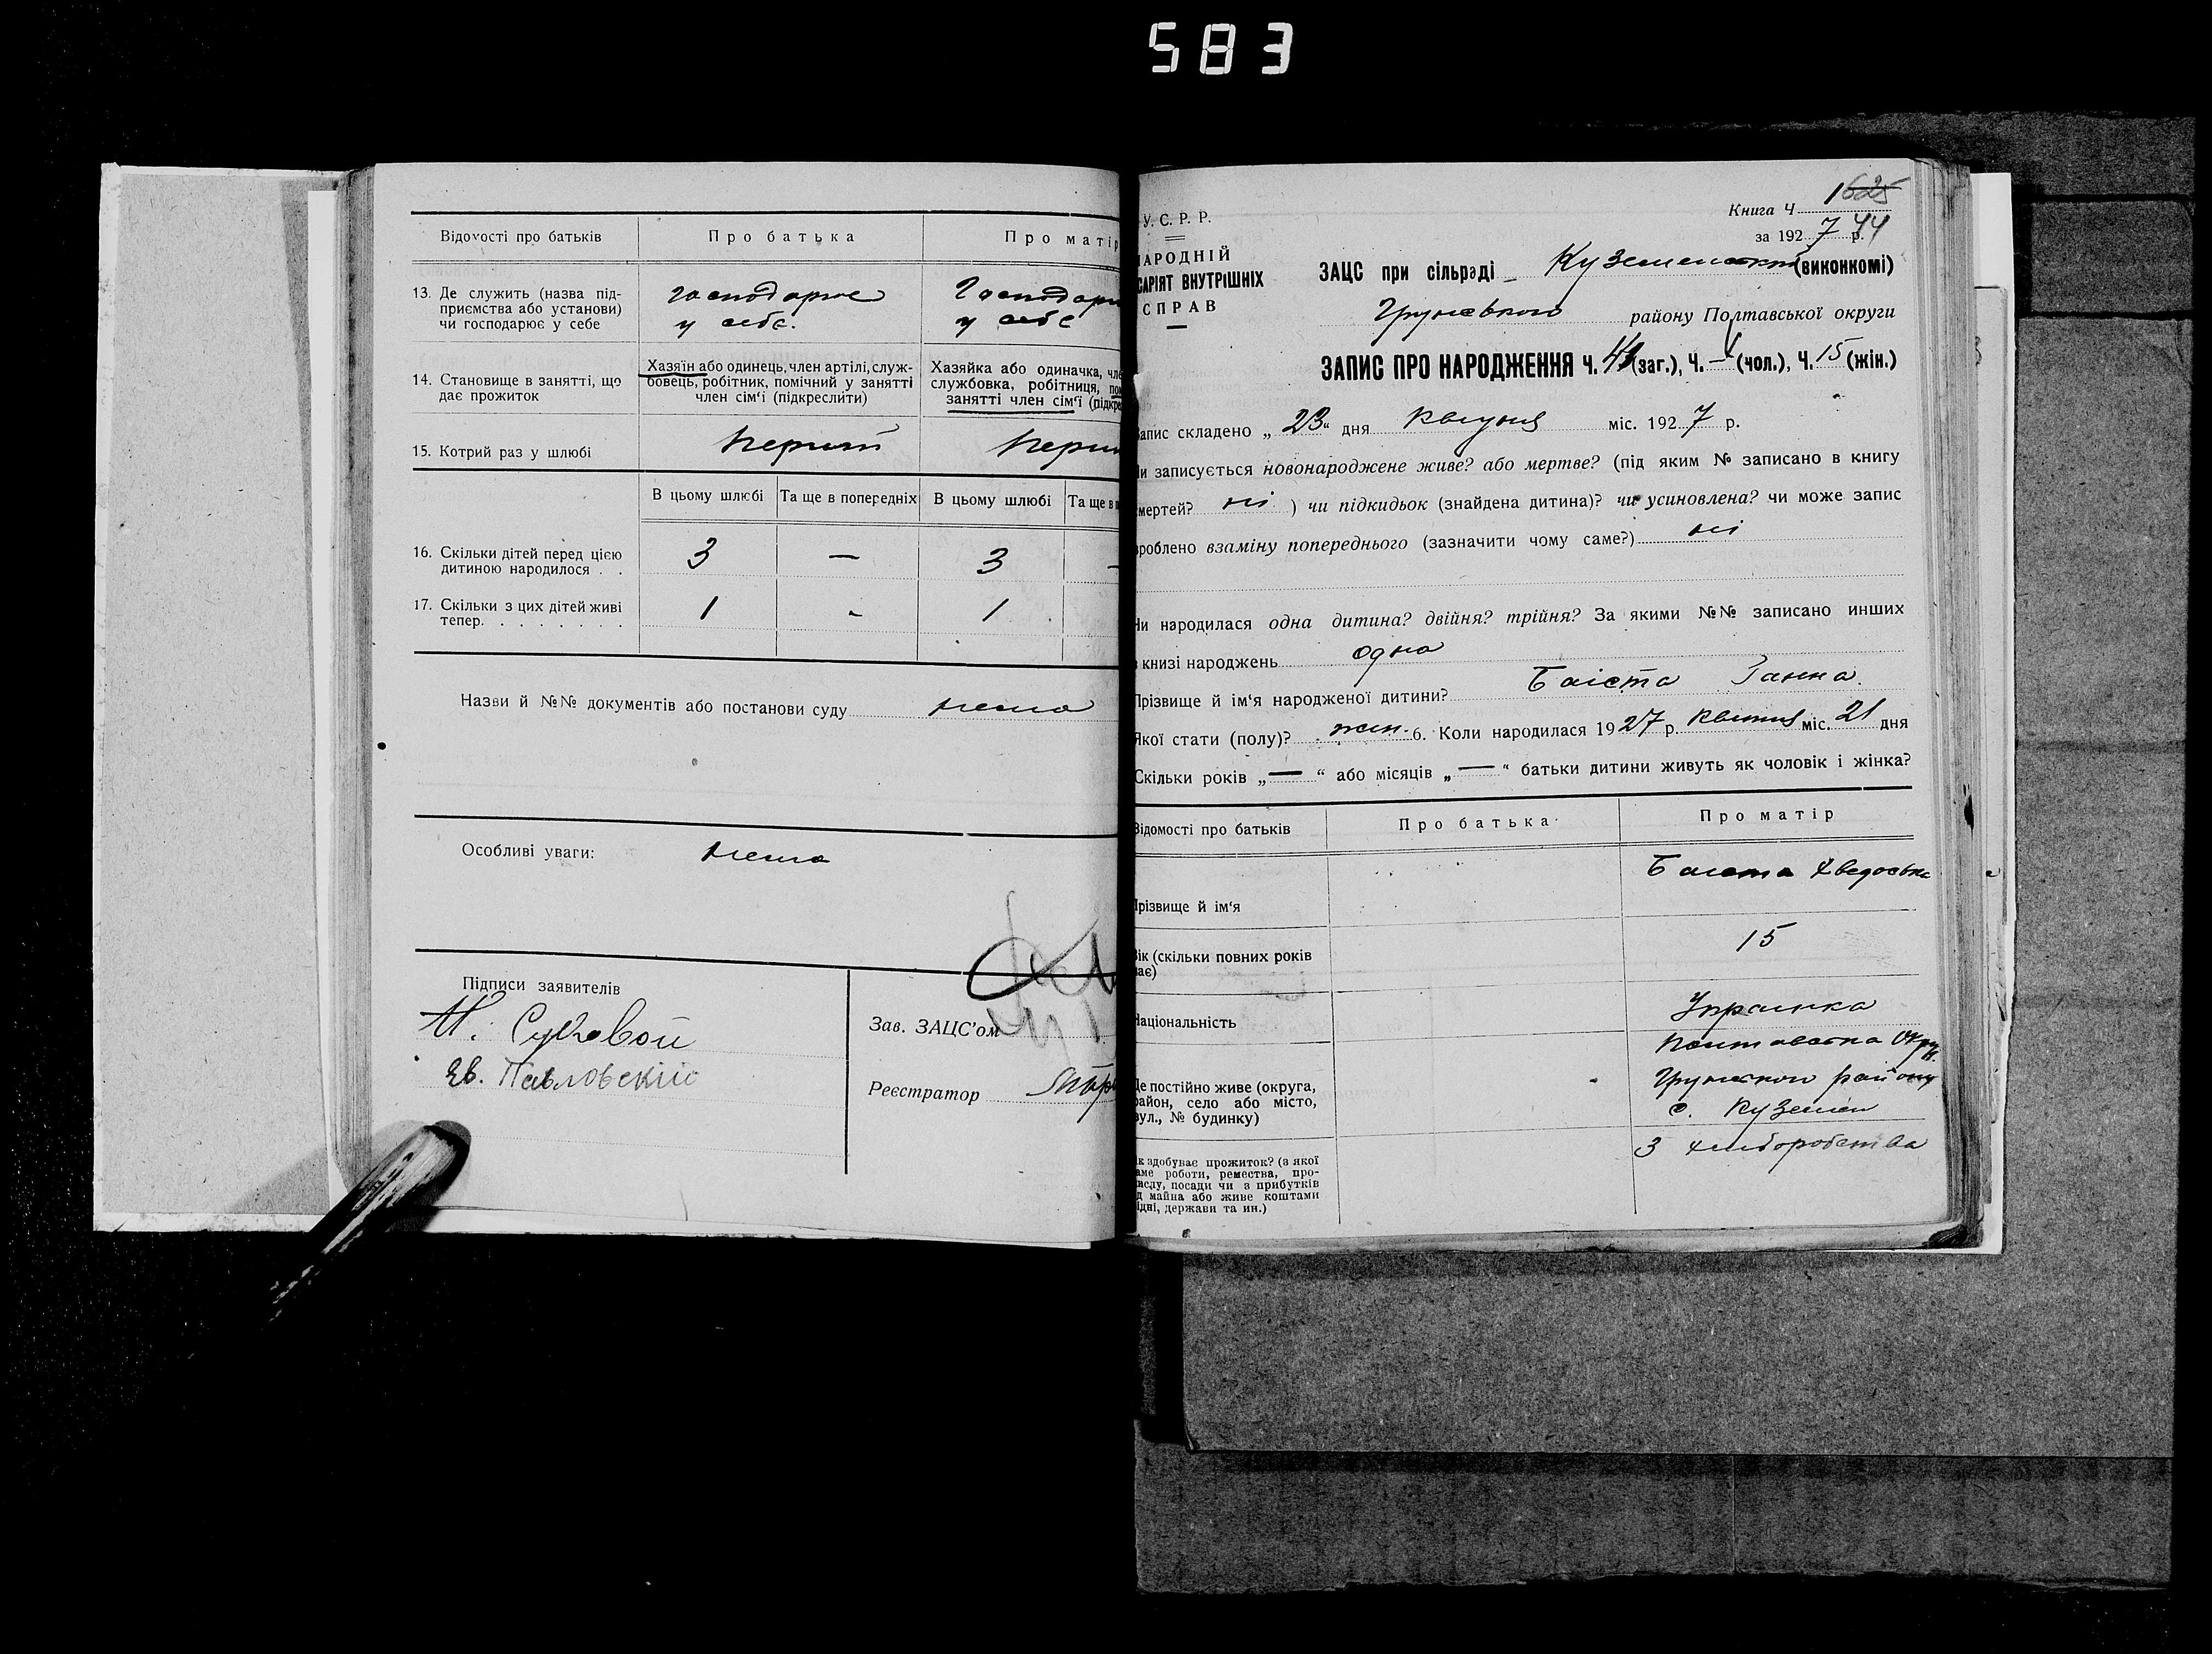 583
Відомості про батьків
Про батька
Про матір
13. Де служить (назва під-
приємства або установи)
чи господарює у себе
господарює
у себе.
Господарює
у себе
14. Становище в занятті, що
дає прожиток
Хазяїн або одинець, член артілі, служ-
бовець, робітник, помічний у занятті
член сім'ї (підкреслити)
Хазяйка або одиначка, чле
службовка, робітниця, по
занятті член сім'ї (підкре
15. Котрий раз у шлюбі
перший
перш
В цьому шлюбі
Та ще в попередніх
В цьому шлюбі
Та ще в п
16. Скільки дітей перед цією
дитиною народилося . .
3
—
3
17. Скільки з цих дітей живі
тепер. . . . . . . .
1
-
1
Назви й №№ документів або постанови суду
нема
Особливі уваги:
нема
Підписи заявителів
Суковой
Яв. Павловский
Зав. ЗАЦС'ом
Реєстратор
У. С. Р. Р.
АРОДНІЙ
САРІЯТ ВНУТРІШНІХ
СПРАВ
Книга Ч 1625
за 1927 р. 44
ЗАЦС при сільраді Куземенській (виконкомі)
Грунського району Полтавської округи
ЗАПИС ПРО НАРОДЖЕННЯ Ч. (заг.), Ч. — (чол.), Ч. 15 (жін.)
апис складено „ 23 " дня квітня міс. 1927 р.
и записується новонароджене живе? або мертве? (під яким № записано в книгу
мертей? ні ) чи підкидьок (знайдена дитина)? чи усиновлена? чи може запис
роблено взаміну попереднього (зазначити чому саме?) ні
Чи народилася одна дитина? двійня? трійня? За якими №№ записано инших
книзі народжень одна
Прізвище й ім'я народженої дитини? Баіста Ганна.
Якої стати (полу)? жін. 6. Коли народилася 1927 р. квітня міс. 21 дня
Скільки років „ — " або місяців „ — " батьки дитини живуть як чоловік і жінка?
Відомості про батьків
Про батька
Про матір
Прізвище й ім'я
Баіста Хведоська
Вік (скільки повних років
має)
15
Національність
Українка
Де постійно живе (округа,
район, село або місто,
вул., № будинку)
Полтавська Округ
Грунського району
с. Куземен
к здобуває прожиток? (з якої
аме роботи, ремества, про-
мислу, посади чи з прибутків
д майна або живе коштами
ідні, держави та ин.)
З хліборобства